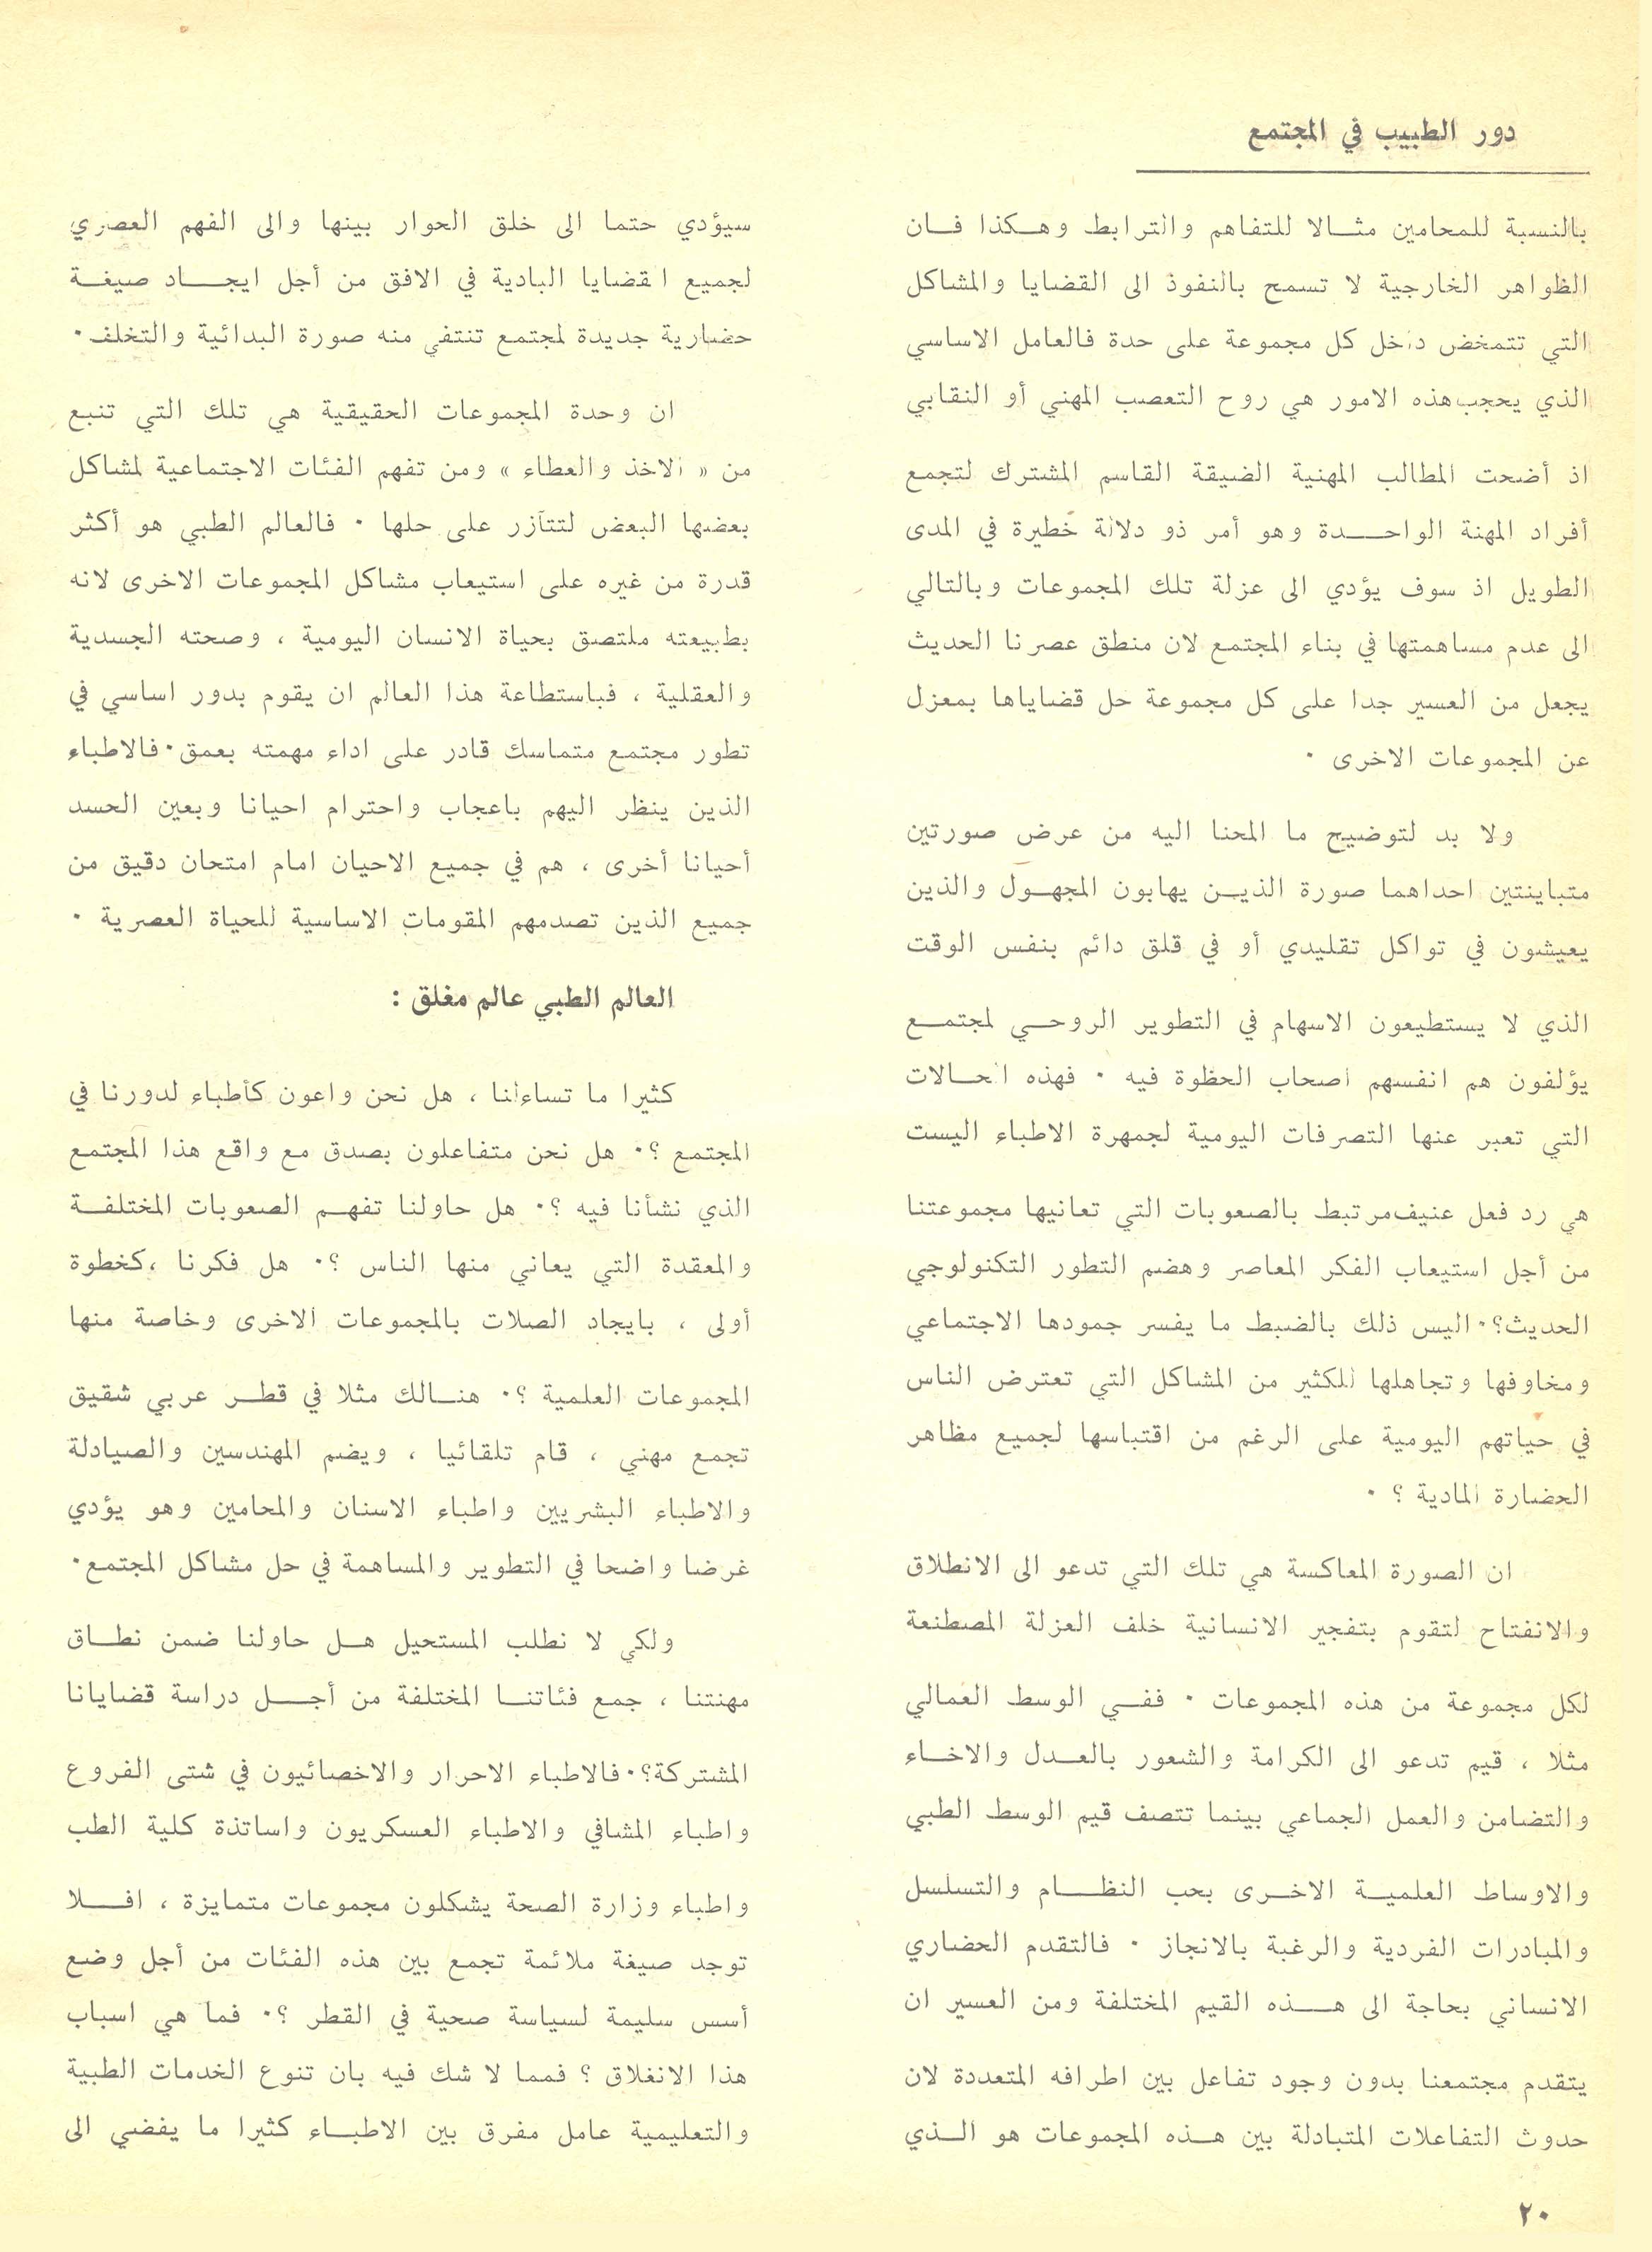 دور الطبيب في المجتمع
بالنسبة للمحامين مثالا للتفاهم والترابط وهكذا فان
الظواهر الخارجية لا تسمح بالنفوذ الى القضايا والمشاكل
التي تتمخض داخل كل مجموعة على حدة فالعامل الاساسي
الذي يحجب هذه الامور هي روح التعصب المهني أو النقابي
اذ أضحت المطالب المهنية الضيقة القاسم المشترك لتجمع
أفراد المهنة الواحدة وهو أمر ذو دلالة خطيرة في المدى
الطويل اذ سوف يؤدي الى عزلة تلك المجموعات وبالتالي
الى عدم مساهمتها في بناء المجتمع لان منطق عصرنا الحديث
يجعل من العسير جدا على كل مجموعة حل قضاياها بمعزل
عن المجموعات الاخرى ٠
ولا بد لتوضيح ما المحنا اليه من عرض صورتين
متباينتين احداهما صورة الذين يهابون المجهول والذين
يعيشون في تواكل تقليدي أو في قلق دائم بنفس الوقت
الذي لا يستطيعون الاسهام في التطوير الروحي لمجتمع
يؤلفون هم انفسهم اصحاب الحظوة فيه ٠ فهذه الحالات
التي تعبر عنها التصرفات اليومية لجمهرة الاطباء اليست
هي رد فعل عنيف مرتبط بالصعوبات التي تعانيها مجموعتنا
من أجل استيعاب الفكر المعاصر وهضم التطور التكنولوجي
الحديث؟٠ اليس ذلك بالضبط ما يفسر جمودها الاجتماعي
ومخاوفها وتجاهلها للكثير من المشاكل التي تعترض الناس
في حياتهم اليومية على الرغم من اقتباسها لجميع مظاهر
الحضارة المادية ؟ ٠
ان الصورة المعاكسة هي تلك التي تدعو الى الانطلاق
والانفتاح لتقوم بتفجير الانسانية خلف العزلة المصطنعة
لكل مجموعة من هذه المجموعات ٠ ففي الوسط العمالي
مثلا ، قيم تدعو الى الكرامة والشعور بالعدل والاخاء
والتضامن والعمل الجماعي بينما تتصف قيم الوسط الطبي
والاوساط العلمية الاخرى بحب النظام والتسلسل
والمبادرات الفردية والرغبة بالانجاز ٠ فالتقدم الحضاري
الانساني بحاجة الى هذه القيم المختلفة ومن العسير ان
يتقدم مجتمعنا بدون وجود تفاعل بين اطرافه المتعددة لان
حدوث التفاعلات المتبادلة بين هذه المجموعات هو الذي
سيؤدي حتما الى خلق الحوار بينها والى الفهم العصري
لجميع القضايا البادية في الافق من أجل ايجاد صيغة
حضارية جديدة لمجتمع تنتفي منه صورة البدائية والتخلف٠
ان وحدة المجموعات الحقيقية هي تلك التي تنبع
من « الاخذ والعطاء » ومن تفهم الفئات الاجتماعية لمشاكل
بعضها البعض لتتآزر على حلها ٠ فالعالم الطبي هو أكثر
قدرة من غيره على استيعاب مشاكل المجموعات الاخرى لانه
بطبيعته ملتصق بحياة الانسان اليومية ، وصحته الجسدية
والعقلية ، فباستطاعة هذا العالم ان يقوم بدور اساسي في
تطور مجتمع متماسك قادر على اداء مهمته بعمق٠ فالاطباء
الذين ينظر اليهم باعجاب واحترام احيانا وبعين الحسد
أحيانا أخرى ، هم في جميع الاحيان امام امتحان دقيق من
جميع الذين تصدمهم المقومات الاساسية للحياة العصرية ٠
العالم الطبي عالم مغلق :
كثيرا ما تساءلنا ، هل نحن واعون كأطباء لدورنا في
المجتمع ؟٠ هل نحن متفاعلون بصدق مع واقع هذا المجتمع
الذي نشأنا فيه ؟٠ هل حاولنا تفهم الصعوبات المختلفة
والمعقدة التي يعاني منها الناس ؟٠ هل فكرنا ،كخطوة
أولى ، بايجاد الصلات بالمجموعات الاخرى وخاصة منها
المجموعات العلمية ؟٠ هنالك مثلا في قطر عربي شقيق
تجمع مهني ، قام تلقائيا ، ويضم المهندسين والصيادلة
والاطباء البشريين واطباء الاسنان والمحامين وهو يؤدي
غرضا واضحا في التطوير والمساهمة في حل مشاكل المجتمع٠
ولكي لا نطلب المستحيل هل حاولنا ضمن نطاق
مهنتنا ، جمع فئاتنا المختلفة من أجل دراسة قضايانا
المشتركة؟٠ فالاطباء الاحرار والاخصائيون في شتى الفروع
واطباء المشافي والاطباء العسكريون واساتذة كلية الطب
واطباء وزارة الصحة يشكلون مجموعات متمايزة ، افلا
توجد صيغة ملائمة تجمع بين هذه الفئات من أجل وضع
أسس سليمة لسياسة صحية في القطر ؟٠ فما هي اسباب
هذا الانغلاق ؟ فمما لا شك فيه بان تنوع الخدمات الطبية
والتعليمية عامل مفرق بين الاطباء كثيرا ما يفضي الى
٢٠